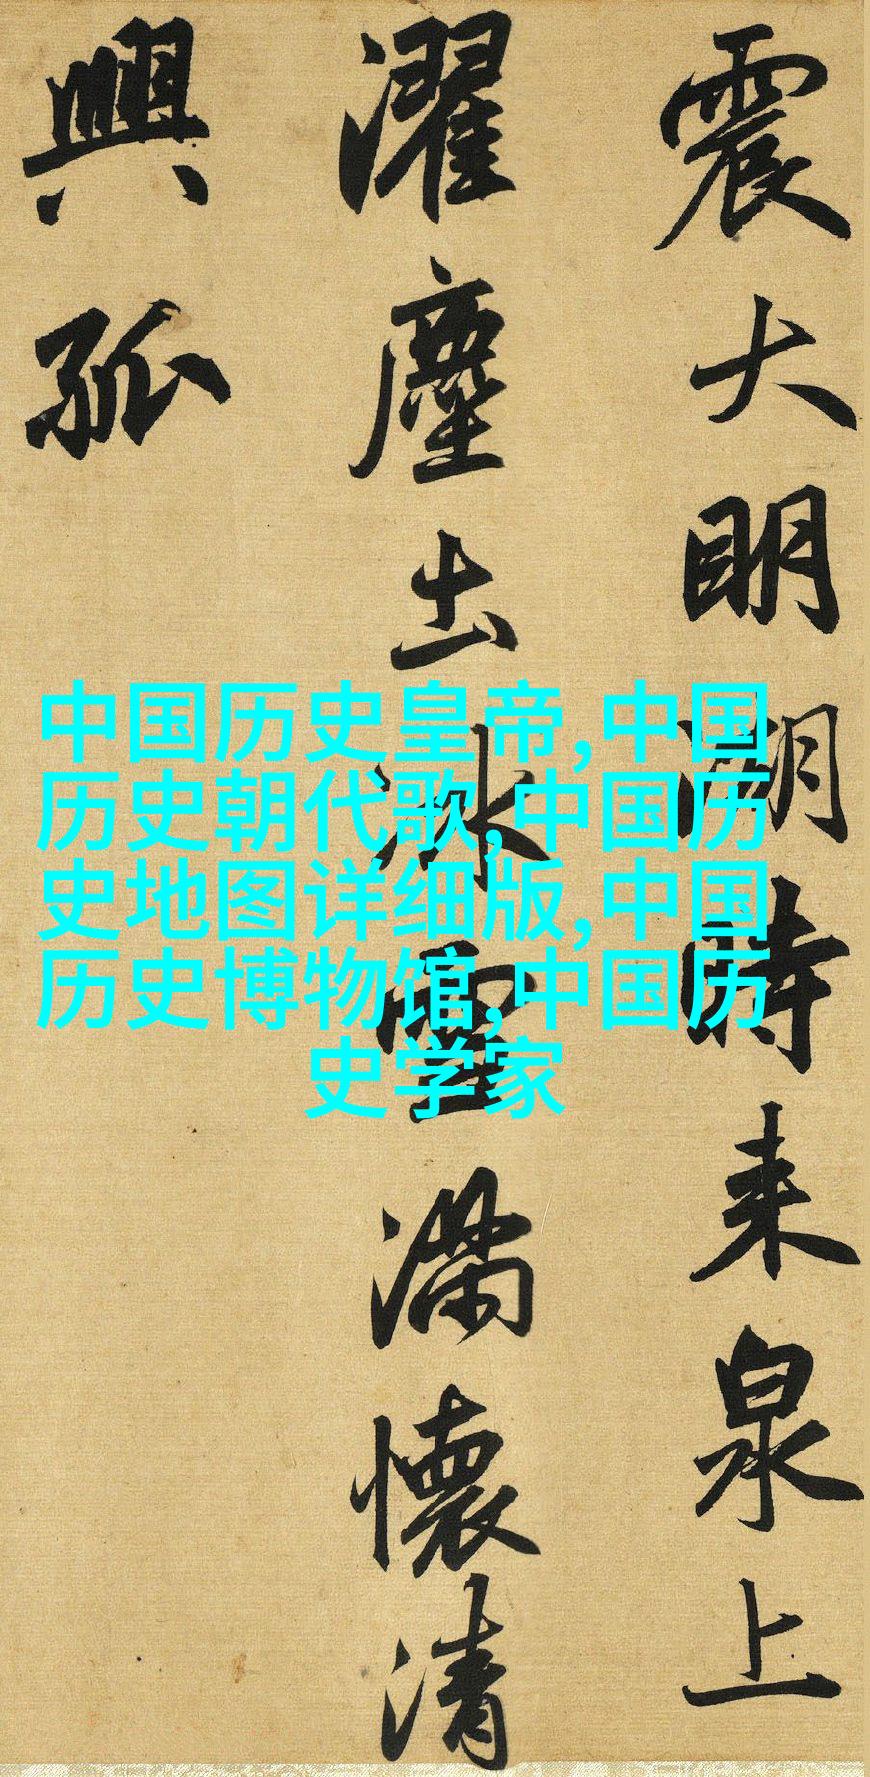 震大明湖時来泉上
濯塵出冰雪滿懷清
興孤
中国历史皇帝,中国
历史朝代歌,中国历
史地图详细版,中国
历史博物馆,中国历
史学家